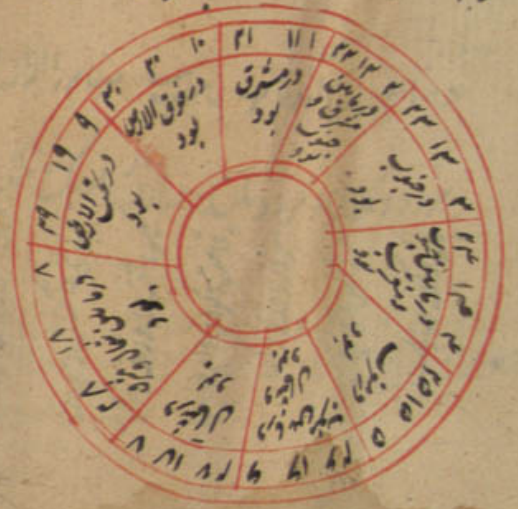 ۱ ۱۱ ۲۱
در مشرق
بود
۲ ۱۲ ۲۲
در مابین
مشرق و
جنوب
بود
۳ ۱۳ ۲۳
در جنوب
بود
۴ ۱۴ ۲۴
در مابین جنوب
و مغرب
بود
۵ ۱۵ ۲۵
در مغرب
بود
۶ ۱۶ ۲۶
در مابین مغرب
و شمال
بود
۷ ۱۷ ۲۷
در شمال
بود
۸ ۱۸ ۲۸
در مابین شمال و مشرق
بود
۹ ۱۹ ۲۹
در تحت الارض
بود
۱۰ ۲۰ ۳۰
در فوق الارض
بود